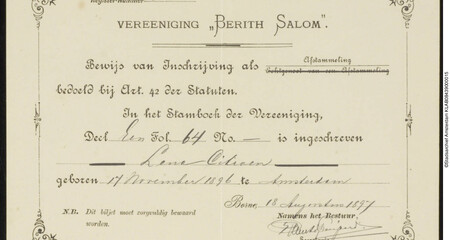 VEREENIGING „BERITH SALOM".
Afstammeling
Bewijs van Inschrijving als Echtgenoot van een Afstammeling
bedoeld bij Art. 42 der Statuten.
In het Stamboek der Vereeniging,
Deel Een Fol. 64 No. — is ingeschreven
Lena Citroen
geboren 17 November 1896 te Amsterdam
Borne, 18 Augustus 1897
N.B. Dit biljet moet zorgvuldig bewaard
worden.
Namens het Bestuur,
©Stadsarchief Amsterdam KLAB09439000015